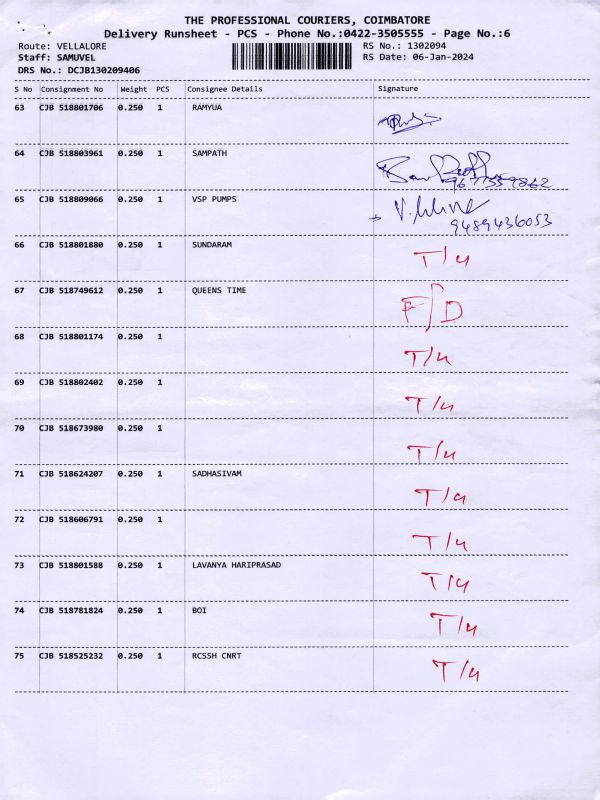 THE PROFESSIONAL COURIERS, COIMBATORE
Delivery Runsheet - PCS - Phone No.:0422-3505555 - Page No.:6
Route: VELLALORE RS No.: 1302094
Staff: SAMUVEL RS Date: 06-Jan-2024
DRS No.: DCJB130209406
S No Consignment No Weight PCS Consignee Details Signature
63 CJB 518801706 0.250 1 RAMYUA
64 CJB 518803961 0.250 1 SAMPATH
65 CJB 518809066 0.250 1 VSP PUMPS
9489436053
66 CJB 518801880 0.250 1 SUNDARAM T/4
67 CJB 518749612 0.250 1 QUEENS TIME F/D
68 CJB 518801174 0.250 1 T/4
69 CJB 518802402 0.250 1 T/4
70 CJB 518673980 0.250 1 T/4
71 CJB 518624207 0.250 1 SADHASIVAM T/4
72 CJB 518606791 0.250 1 T/4
73 CJB 518801588 0.250 1 LAVANYA HARIPRASAD T/4
74 CJB 518781824 0.250 1 BOI T/4
75 CJB 518525232 0.250 1 RCSSH CNRT T/4